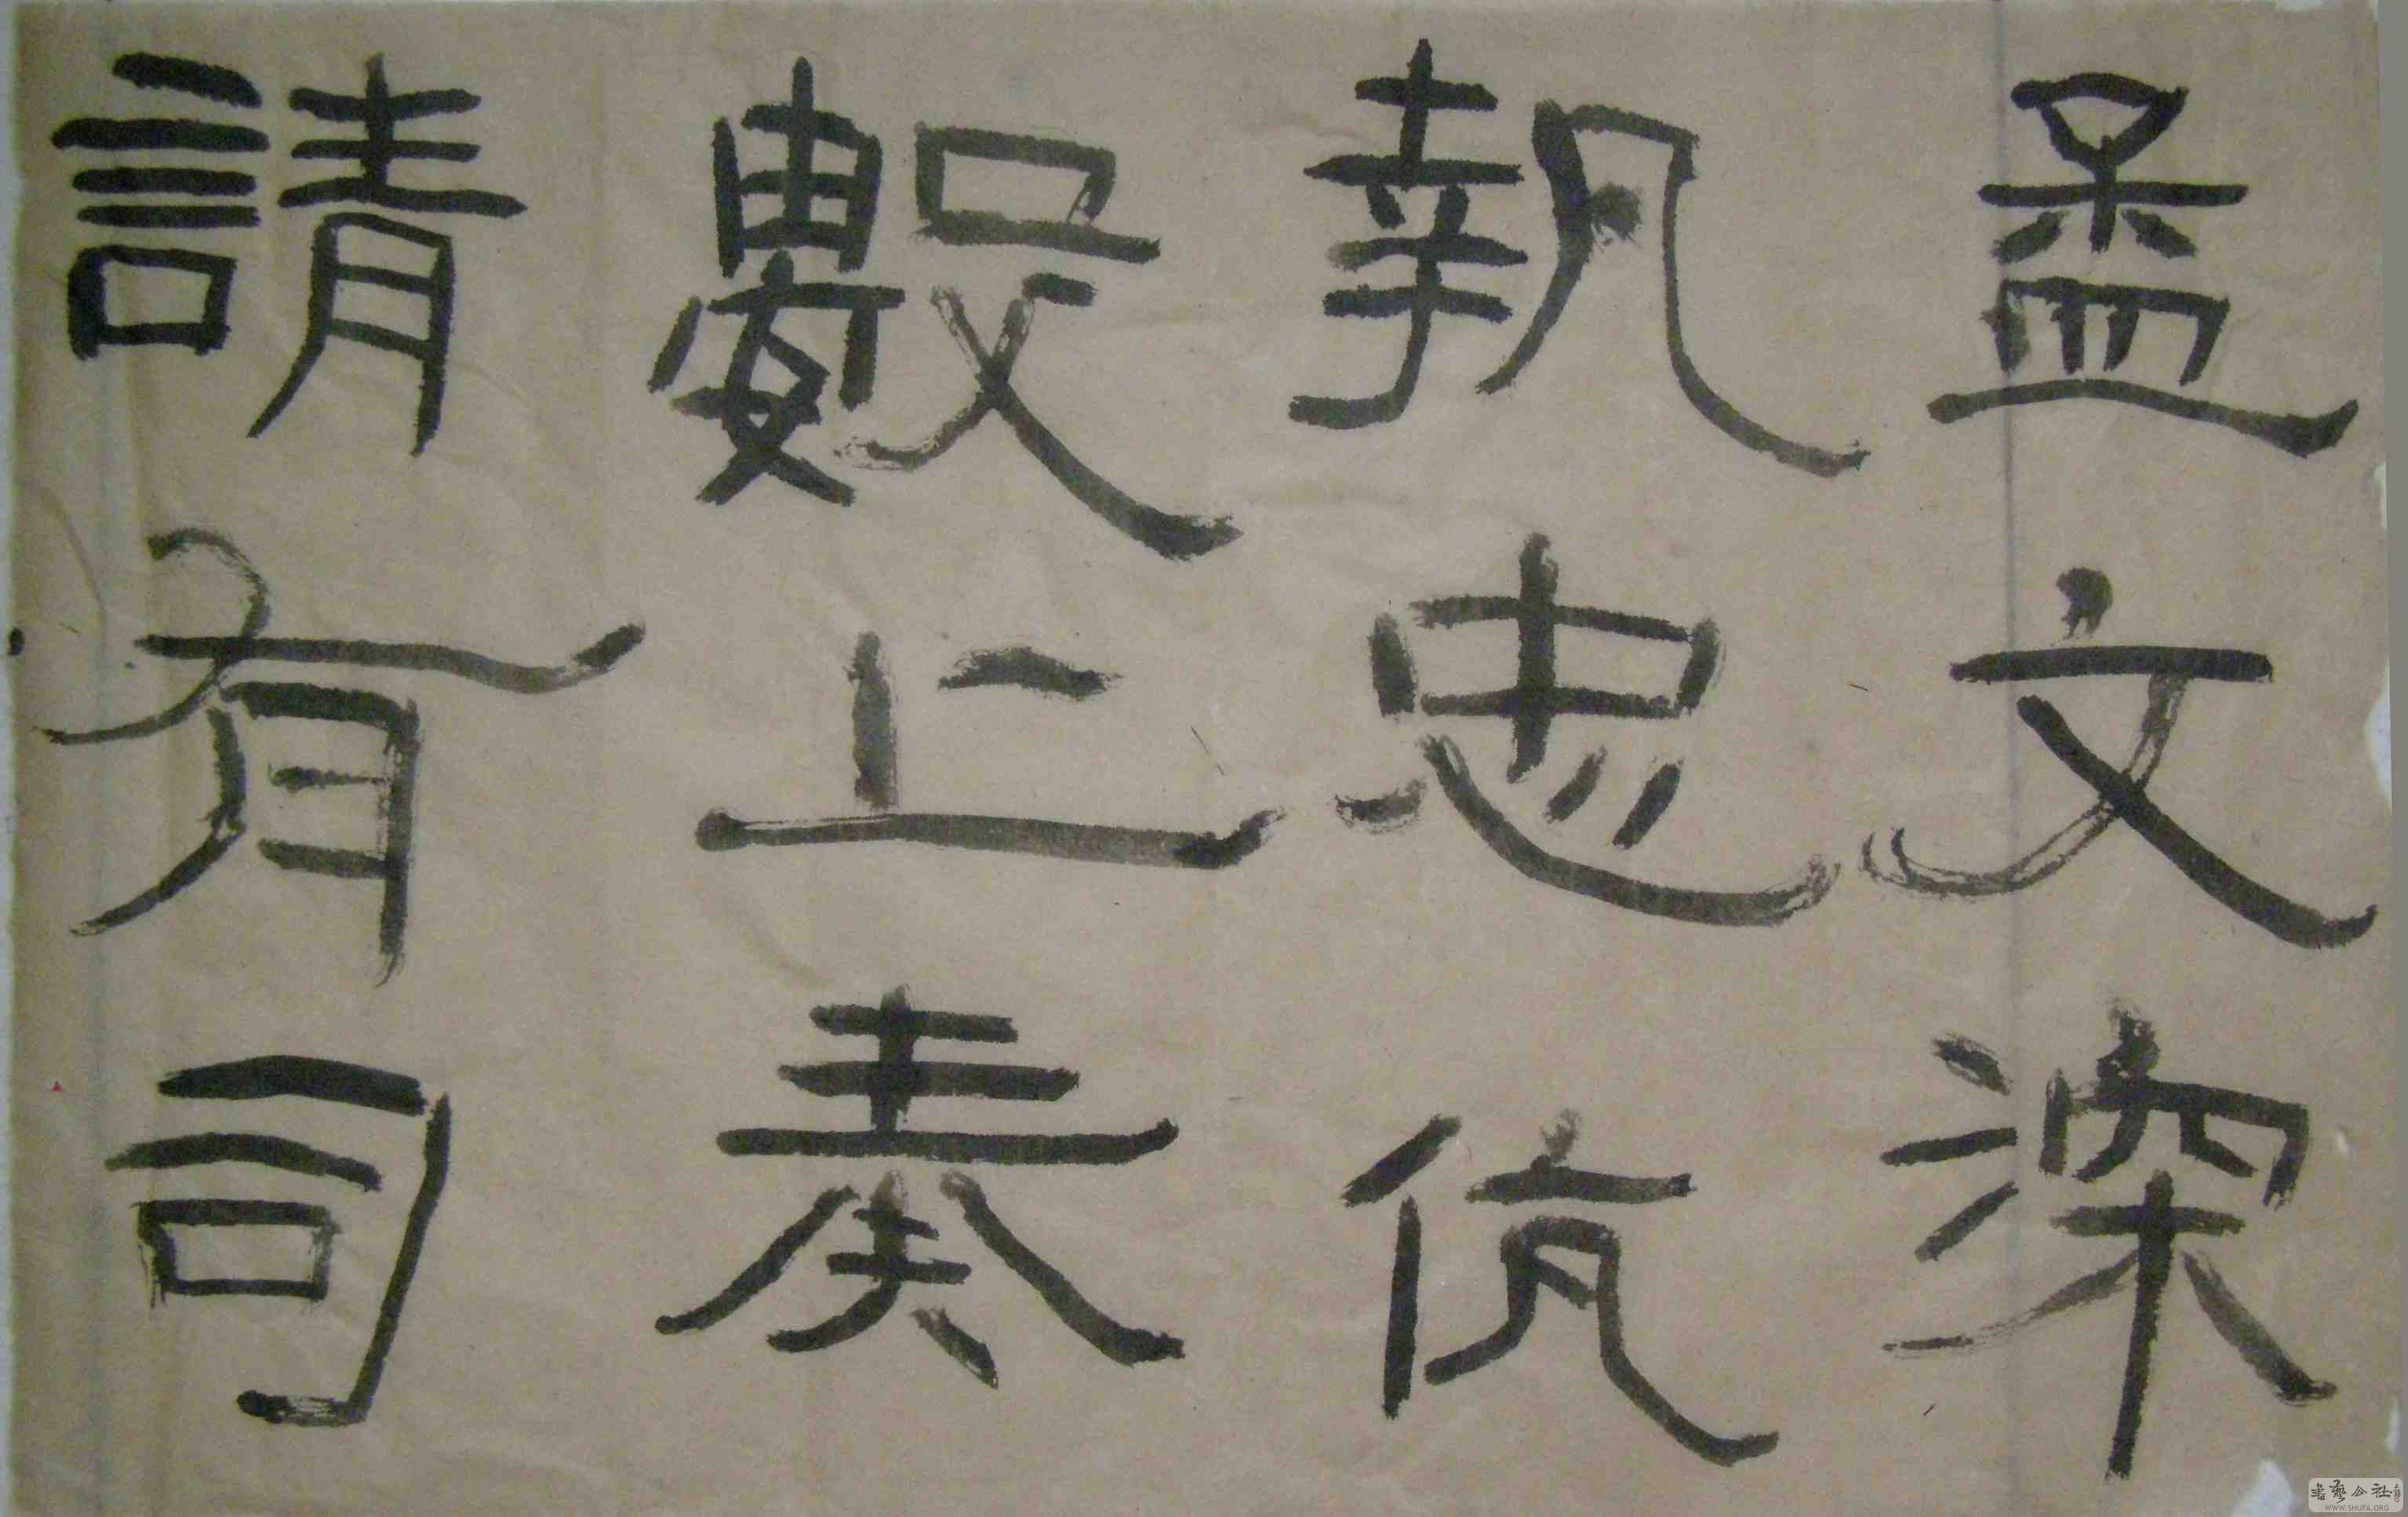 孟文深
執忠伉
數上奏
請有司
書藝公社
WWW.SHUFA.ORG